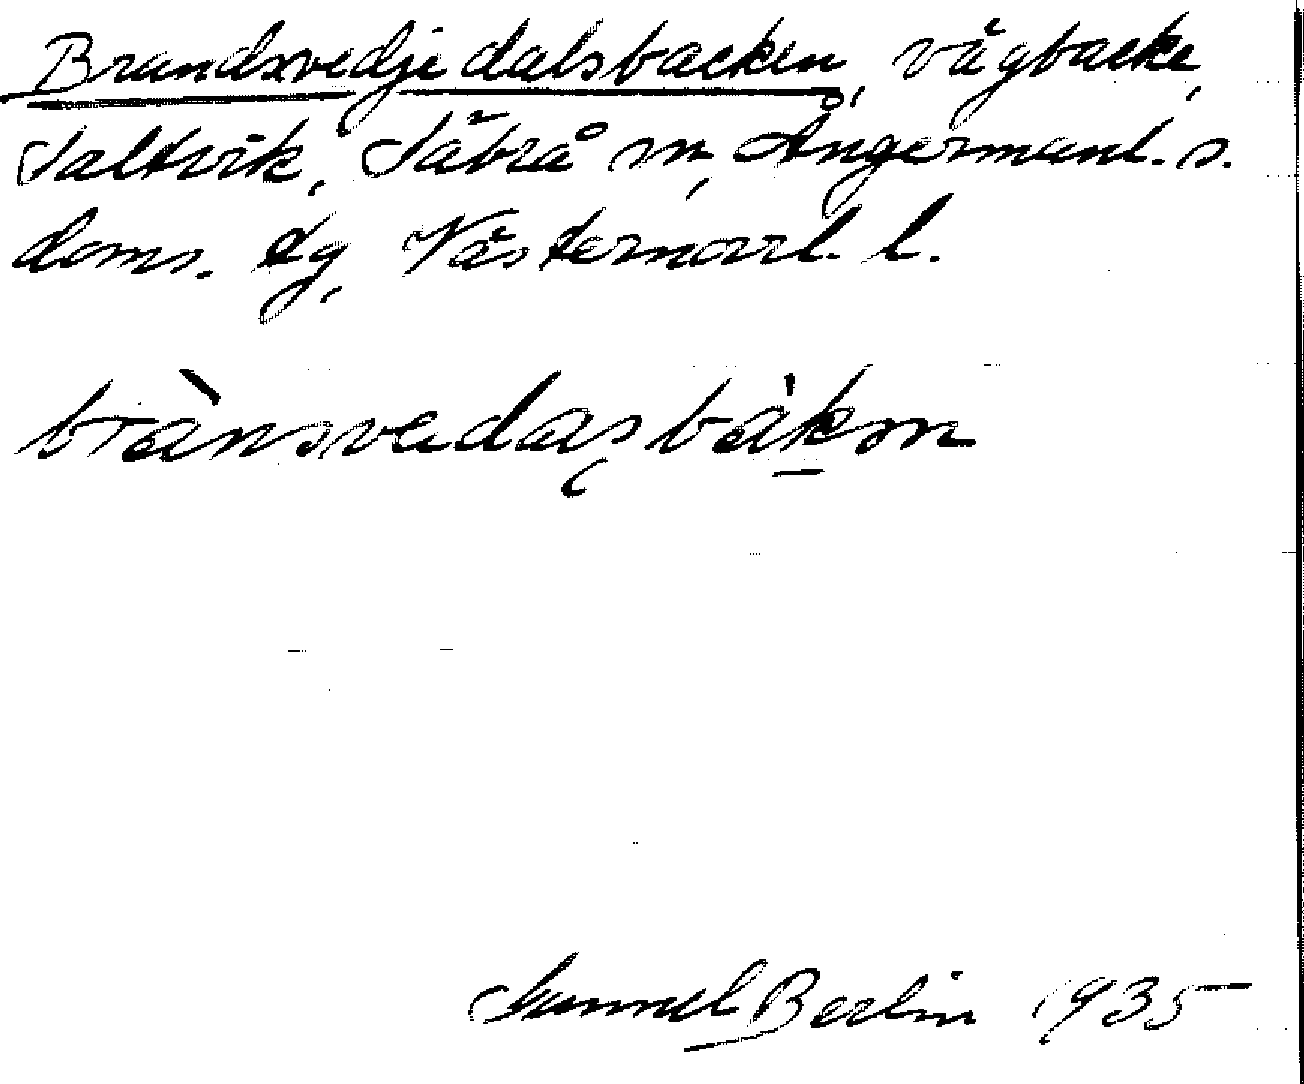 Brandsvedjedalsbacken, vägbacke,
Saltvik, Säbrå sn, Ångermanl. s.
doms. tg, Västernorrl. l.
Samuel Berlin 1935